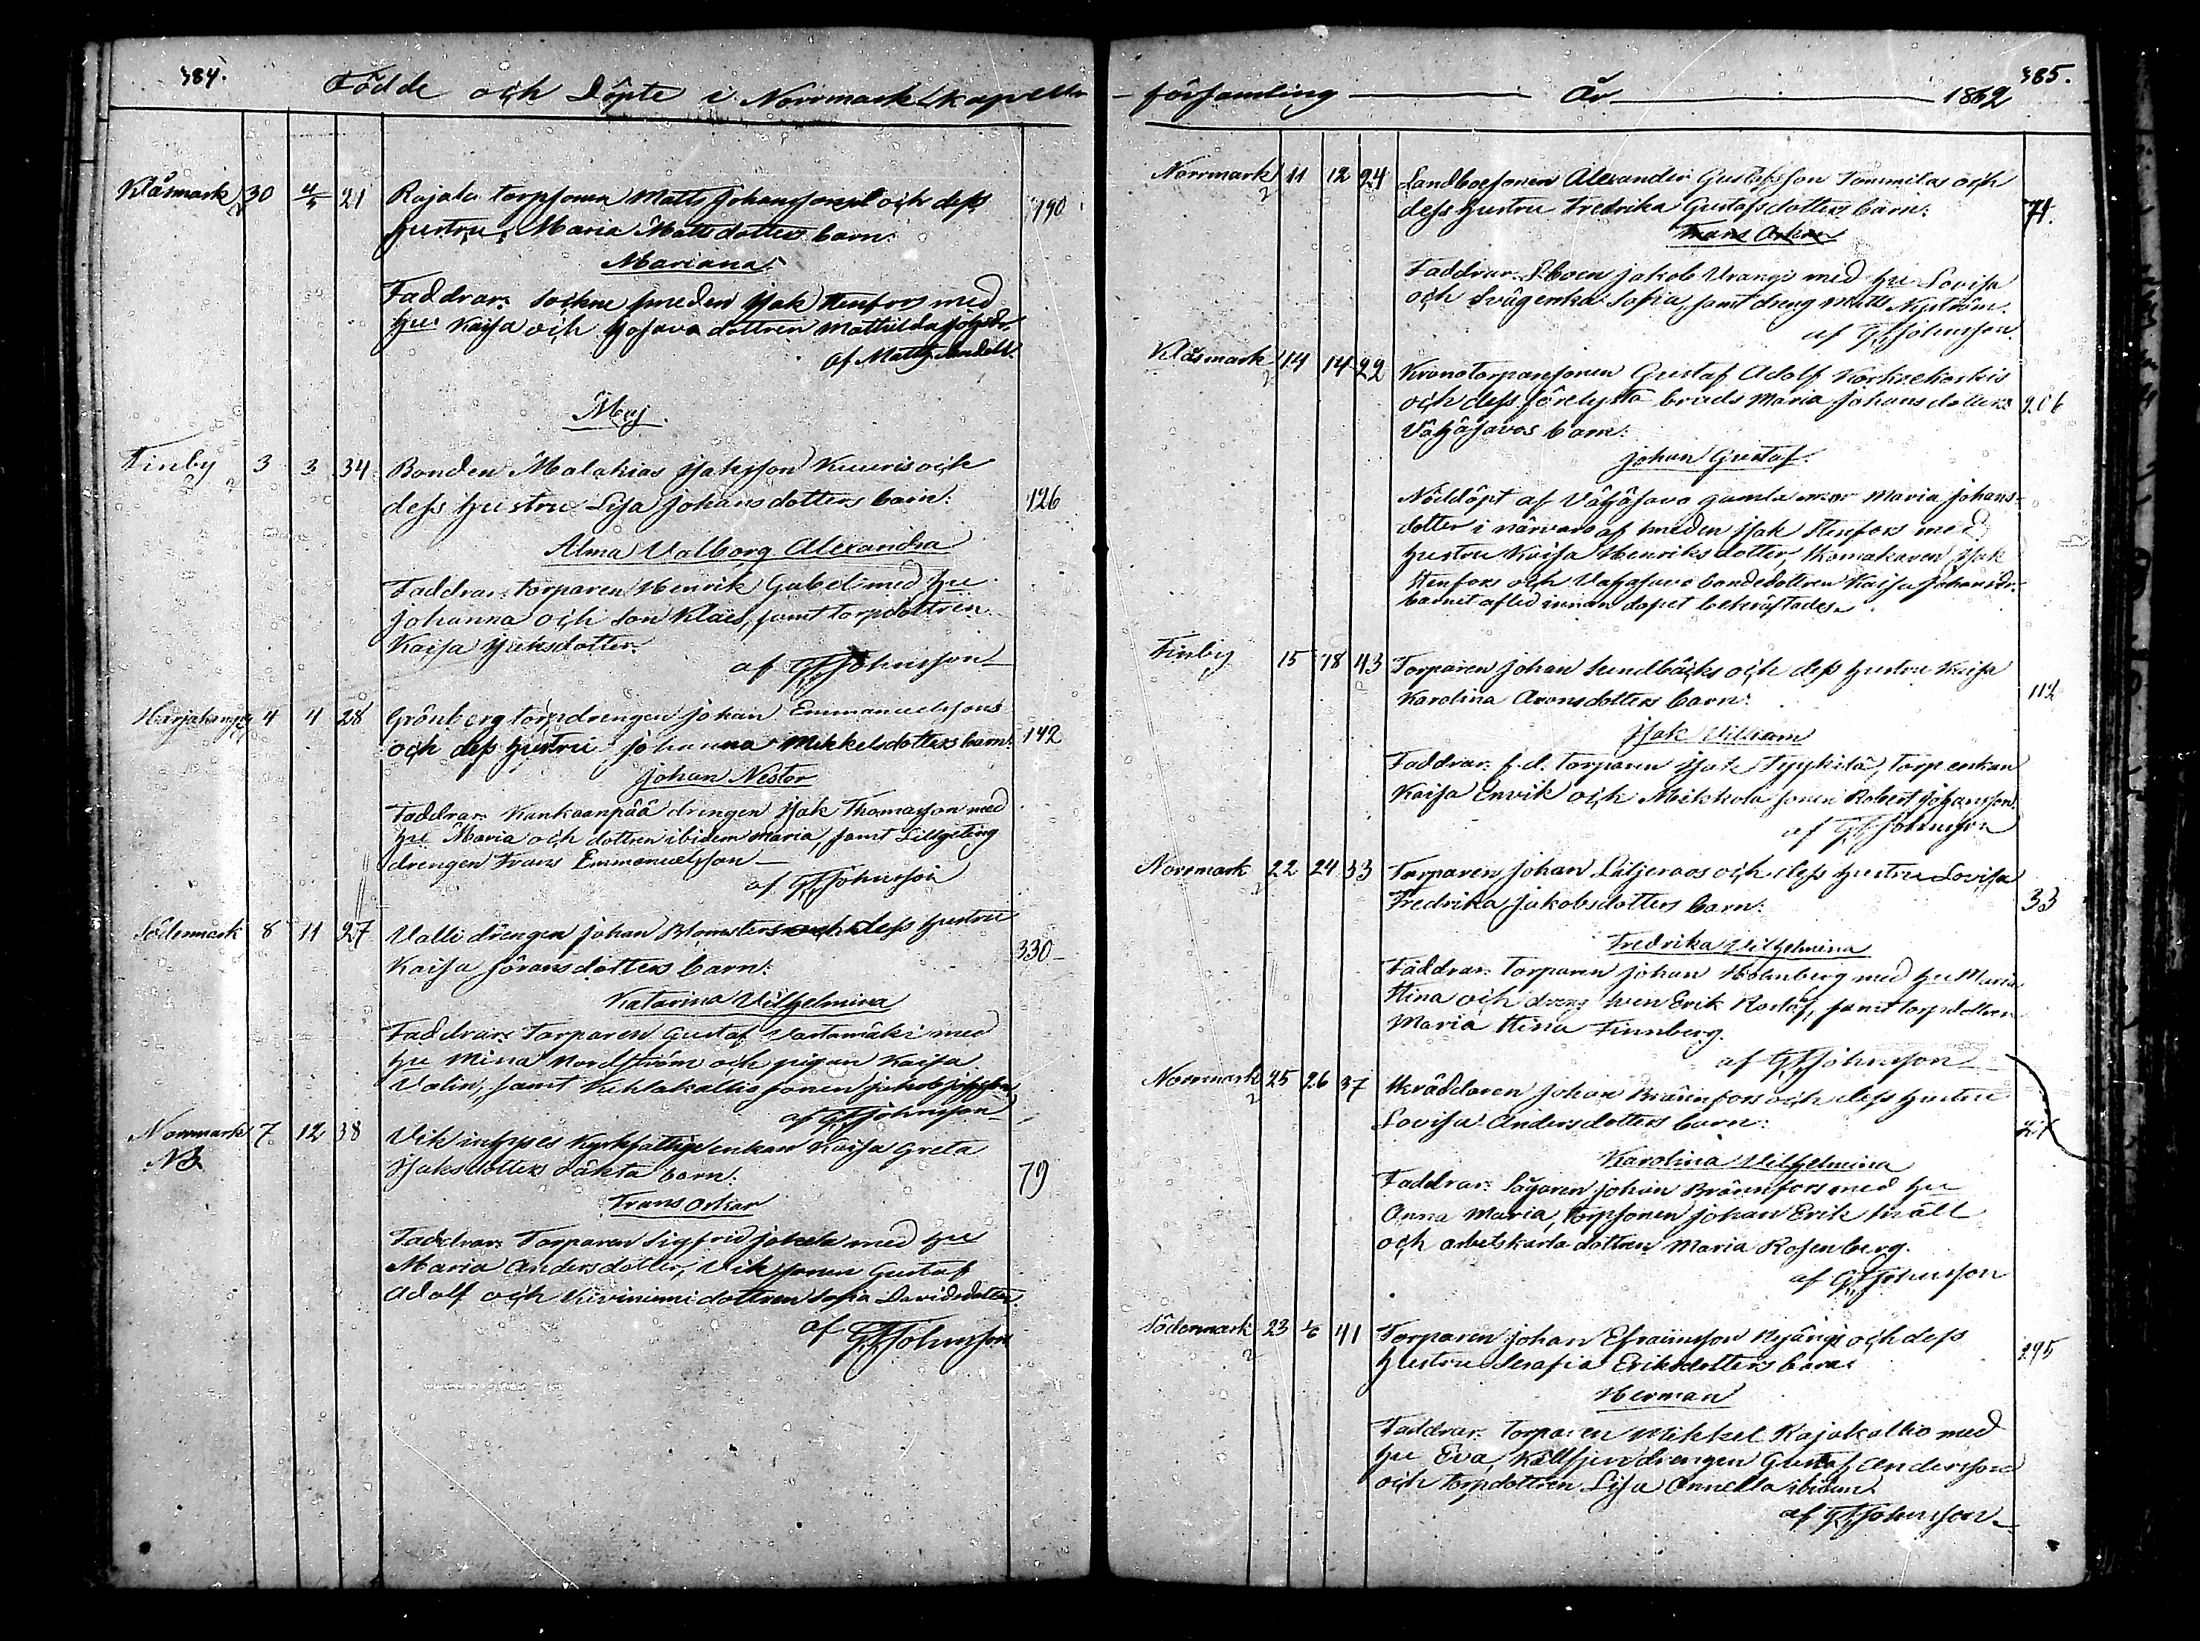 384.
Födde och Döpte i Norrmark kapells
Klåsmark 30 4/5 21 Rajala torpsonen Matts Johanssons och dess 190
hustru, Maria Mattsdotters barn:
Mariana.
Faddrar: Sockne smeden Isak Stenfors med
hu Kaisa och dottren Mathilda Johsdr.
af Matts
Maj.
Finby 3 3 34 Bonden Malakias Isaksson Kuuris och
dess hustru Lisa Johansdotters barn: 126
Alma Valborg Alexandra
Faddrar: torparen Henrik Gabel med hu
Johanna och son Klaes, samt torpdottren
Kaisa Isaksdotter.
af G.F. Johnsson
4 4 28 Grönberg torpdrengen Johan Emmanuelssons
och dess hustru Johanna Mikkelsdotters barn: 142
Johan Nestor
Faddrar: Kankaanpää drengen Isak Thomasson med
hu Maria och dottren ibidem Maria, samt
drengen Frans Emmanuelsson
af G.F. Johnsson
Södermark 8 11 27 Valli drengen Johan Blomsters och dess hustru 330
Kaisa Göransdotters barn:
Katarina Vilhelmina
Faddrar: Torparen Gustaf Vartamäki med
hu Mina Nordström och pigan Kaisa
Valin, samt sonen Jakob
af G.F. Johnsson
Norrmark 7 12 38 Vik inhyses Kyrkfattige enkan Kaisa Greta
N3 Isaksdotters oäkta barn: 79
Frans Oskar
Faddrar: Torparen Sigfrid Jokela med hu
Maria Andersdotter, Vik sonen Gustaf
Adolf och Kiviniemi dottren Sofia Davidsdotter.
af G.F. Johnsson
385.
församling År 1862
Norrmark 11 12 24 Landboesonen Alexander Gustafsson Tommilas och
2 dess hustru Fredrika Gustafsdotters barn: 71.
Frans Oskar
Faddrar: Lboen Jakob Vrange med hu Lovisa
och Svägerska Sofia, samt dreng Matts Nyström.
af G.F. Johnsson
Klåsmark 14 14 22 Kronotorparsonen Gustaf Adolf Korkeekoskis
2 och dess förelysta bruds Maria Johansdotters 206
Vähäsavos barn:
Johan Gustaf.
Nöddöpt af Vähäsavo gamla mor Maria Johans-
dotter i närvaro af smeden Isak Stenfors med
hustru Kaisa Henriksdotter, Skomakaren Isak
Stenfors och Vähäsavo bondedottren Kaisa Johansdr.
barnet afled innan dopet bekräftades.
Finby 15 18 43 Torparen Johan Sundbäcks och dess hustru Kaisa
Karolina Aronsdotters barn: 112
Isak William
Faddrar: f.d. torparen Isak Tyykilä, torpenkan
Kaisa Envik och Mikkola sonen Robert Johansson.
af G.F. Johnsson
Norrmark 22 24 33 Torparen Johan Liljeroos och dess hustru Lovisa
2 Fredrika Jakobsdotters barn: 33
Fredrika Vilhelmina
Faddrar: Torparen Johan Holmberg med hu Maria
Stina och dreng Sven Erik Rostaf, samt torpdottren
Maria Stina Finnberg.
af G.F. Johnsson
Norrmark 25 26 37 Skräddaren Johan Brännfors och dess hustru
2 Lovisa Andersdotters barn: 27
Karolina Vilhelmina
Faddrar: Sågaren Johan Brännfors med hu
Anna Maria, torpsonen Johan Erik Snäll
och arbetskarla dottren Maria Rosenberg.
af G.F. Johnsson
Södermark 23 1/6 41 Torparen Johan Efraimsson och dess
2 hustru Serafia Eriksdotters barn: 295
Herman
Faddrar: Torparen Mikkel Rajakallio med
hu Eva, Källfjerd drengen Gustaf Andersson
och torpdottren Lisa Annella ibidem.
af G.F. Johnsson